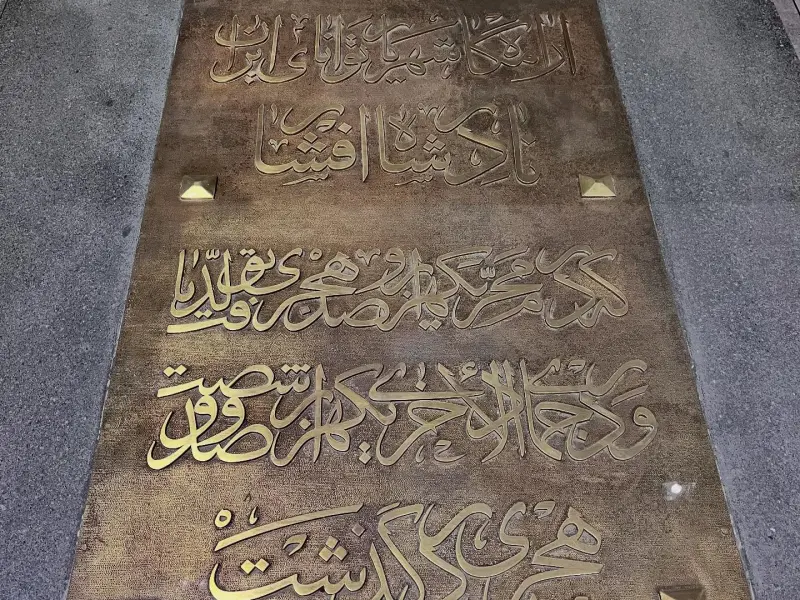 آرامگاه شهریار توانای ایران
نادرشاه افشار
که در محرم یکهزار و صد هجری تولد یافت
و در جمادی الاخری یکهزار و صد و شصت
هجری در گذشت